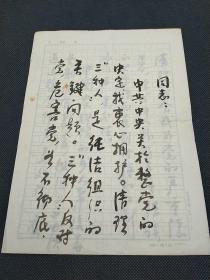 同志：
中共中央关于整党的
决定我衷心拥护。清理
“三种人”是纯洁组织的
关键问题。“三种人”反对
党危害党，若不彻底